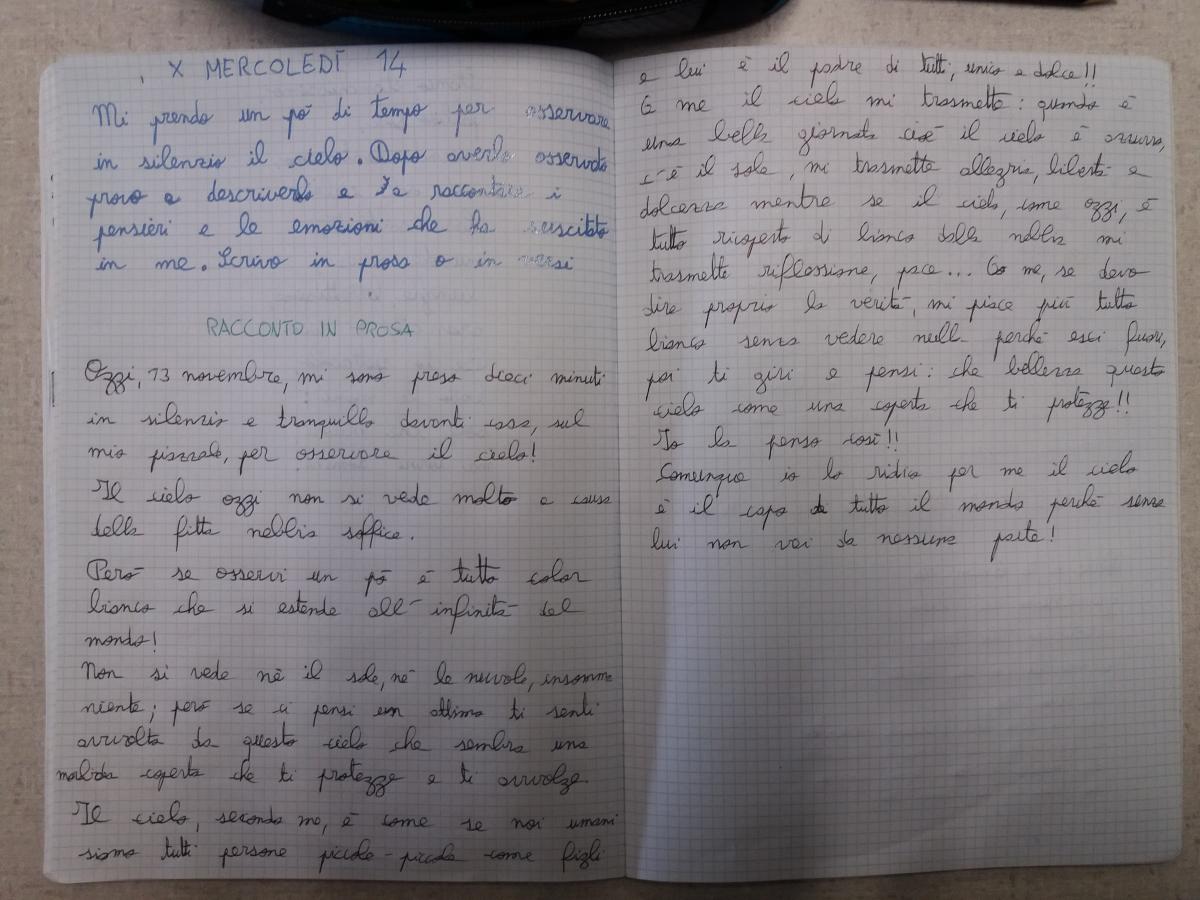 X MERCOLEDÌ 14
Mi prendo un pò di tempo per osservare
in silenzio il cielo. Dopo averlo osservato
provo a descriverlo e a raccontare i
pensieri e le emozioni che ha suscitato
in me. Scrivo in prosa o in versi
RACCONTO IN PROSA
Oggi, 13 novembre, mi sono preso dieci minuti
in silenzio e tranquillo davanti casa, sul
mio piazzale, per osservare il cielo!
Il cielo oggi non si vede molto a causa
della fitta nebbia soffice.
Però se osservi un pò è tutto color
bianco che si estende all'infinità del
mondo!
Non si vede nè il sole, nè le nuvole, insomma
niente; però se ci pensi un attimo ti senti
avvolto da questo cielo che sembra una
morbida coperta che ti protegge e ti avvolge.
Il cielo, secondo me, è come se noi umani
siamo tutti persone piccole-piccole come figli
e lui è il padre di tutti, unico e dolce!!
A me il cielo mi trasmette: quando è
una bella giornata cioè il cielo è azzurro,
c'è il sole, mi trasmette allegria, libertà e
dolcezza mentre se il cielo, come oggi, è
tutto ricoperto di bianco dalla nebbia mi
trasmette riflessione, pace... A me, se devo
dire proprio la verità, mi piace più tutto
bianco senza vedere null perchè esci fuori,
poi ti giri e pensi: che bellezza questo
cielo come una coperta che ti protegge!!
Io la penso così!!
Comunque io lo ridico per me il cielo
è il capo di tutto il mondo perchè senza
lui non vai da nessuna parte!